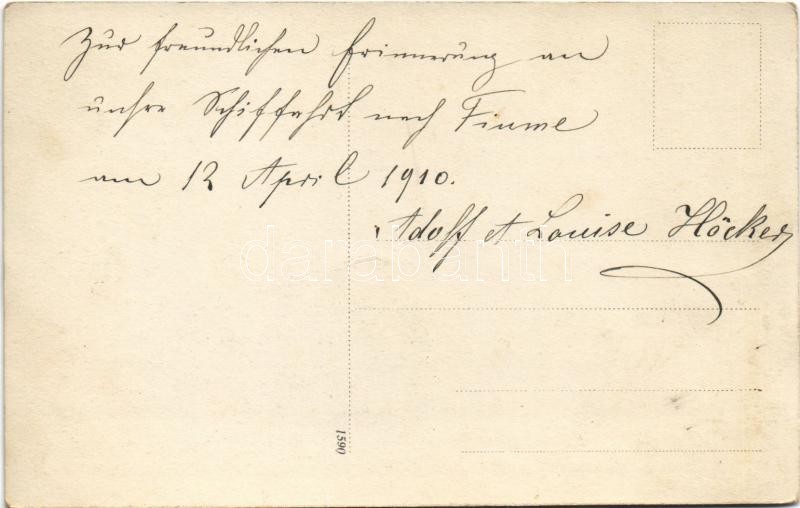 Zur freundlichen Erinnerung an
unsre Schiffahrt nach Fiume
am 12 April 1910.
Adolf et Louise Höcker
darabanth
1590